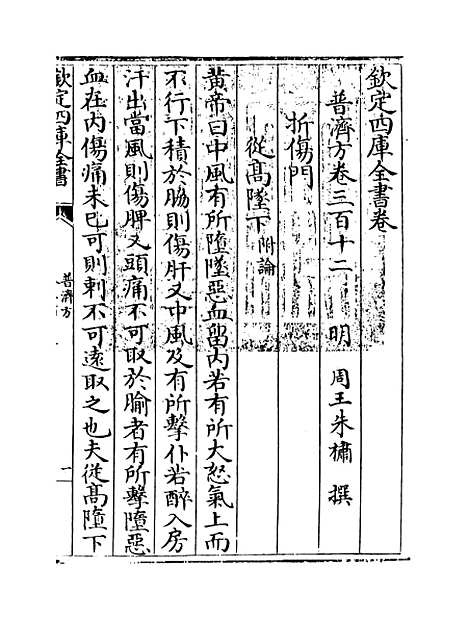 欽定四庫全書卷
普濟方卷三百十二 明 周王朱橚 撰
折傷門
從高墜下附論
黄帝曰中風有所墮墜惡血留内若有所大怒氣上而
不行下積於脇則傷肝又中風及有所擊仆若醉入房
汗出當風則傷脾又頭痛不可取於腧者有所擊墮惡
血在内傷痛未已可則刺不可逺取之也夫從高墮下
欽定四庫全書
普濟方
一